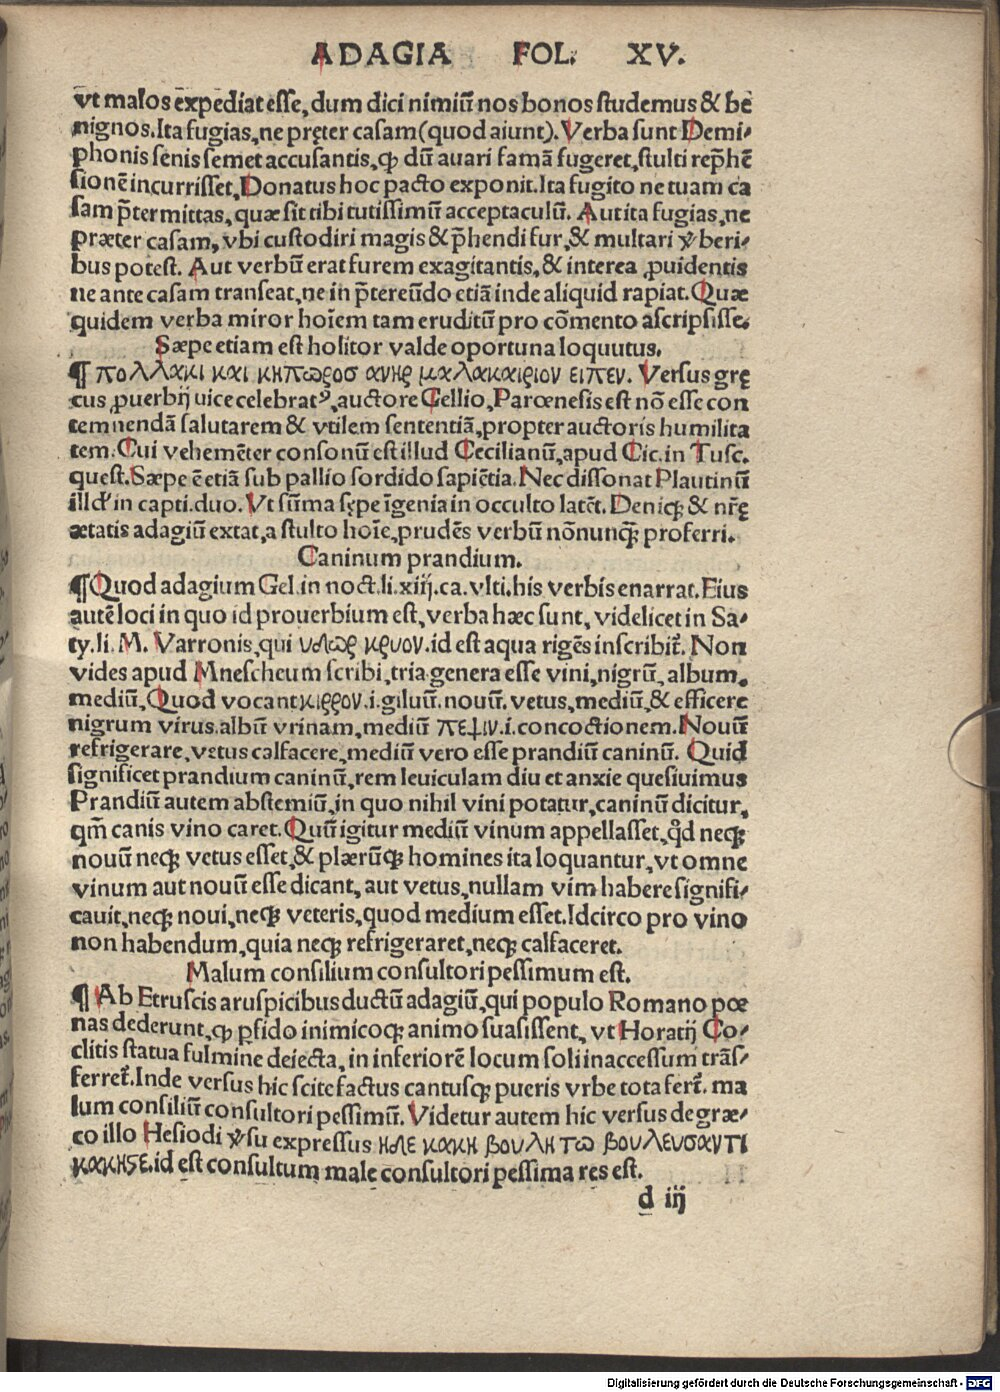 ADAGIA FOL. XV.
vt malos expediat esse, dum dici nimiū nos bonos studemus & be
nignos. Ita fugias, ne pręter casam (quod aiunt). Verba sunt Demi-
phonis senis semet accusantis, ꝙ dū auari famā fugeret, stulti rep̄hē
sionē incurrisset. Donatus hoc pacto exponit. Ita fugito ne tuam ca
sam p̄termittas, quæ sit tibi tutissimū acceptaculū. Aut ita fugias, ne
præter casam, vbi custodiri magis & p̄hendi fur, & multari ꝟberi-
bus potest. Aut verbū erat furem exagitantis, & interea ꝓuidentis
ne ante casam transeat, ne in p̄tereūdo etiā inde aliquid rapiat. Quæ
quidem verba miror hoīem tam eruditū pro cōmento ascripsisse.
Sæpe etiam est holitor valde oportuna loquutus.
¶ πολλακι και κηπωροσ ανηρ μαλακαιριον ειπεν. Versus grę
cus ꝓuerbij uice celebratꝰ, auctore Gellio, Parœnesis est nō esse con
temnendā salutarem & vtilem sententiā, propter auctoris humilita
tem. Cui vehemēter consonū est illud Cecilianū, apud Cic. in Tusc.
quest. Sæpe ē etiā sub pallio sordido sapiētia. Nec dissonat Plautinū
illd' in capti. duo. Vt sūma sępe īgenia in occulto latēt. Deniqꝫ & nr̄ę
ætatis adagiū extat, a stulto hoīe, prudēs verbū nōnunqꝫ proferri.
Caninum prandium.
¶ Quod adagium Gel. in noct. li. xiij. ca. vlti. his verbis enarrat. Eius
autē loci in quo id prouerbium est, verba hæc sunt, videlicet in Sa-
ty. li. M. Varronis, qui υδωρ κρυον. id est aqua rigēs inscribit̄. Non
vides apud Mnescheum scribi, tria genera esse vini, nigrū, album,
mediū. Quod vocant κιρρον. i. giluū. nouū. vetus, mediū, & efficere
nigrum virus. albū vrinam, mediū πεψιν. i. concoctionem. Nouū
refrigerare, vetus calfacere, mediū vero esse prandiū caninū. Quid
significet prandium caninū, rem leuiculam diu et anxie quesiuimus
Prandiū autem abstemiū, in quo nihil vini potatur, caninū dicitur,
qm̄ canis vino caret. Quū igitur mediū vinum appellasset, qd̓ neqꝫ
nouū neqꝫ vetus esset, & plærūqꝫ homines ita loquantur, vt omne
vinum aut nouū esse dicant, aut vetus, nullam vim habere signifi-
cauit, neqꝫ noui, neqꝫ veteris, quod medium esset. Idcirco pro vino
non habendum, quia neqꝫ refrigeraret, neqꝫ calfaceret.
Malum consilium consultori pessimum est.
¶ Ab Etruscis aruspicibus ductū adagiū, qui populo Romano pœ
nas dederunt, ꝙ ꝑfido inimicoqꝫ animo suasissent, vt Horatij Co-
clitis statua fulmine deiecta, in inferiorē locum soli inaccessum trāſ-
ferret̄. Inde versus hic scite factus cantusqꝫ pueris vrbe tota fert̄. ma
lum consiliū consultori pessimū. Videtur autem hic versus de græ-
co illo Hesiodi ꝟsu expressus ηδε κακη βουλη τω βουλευσαντι
κακηςε. id est consultum male consultori pessima res est.
d iij
Digitalisierung gefördert durch die Deutsche Forschungsgemeinschaft - DFG